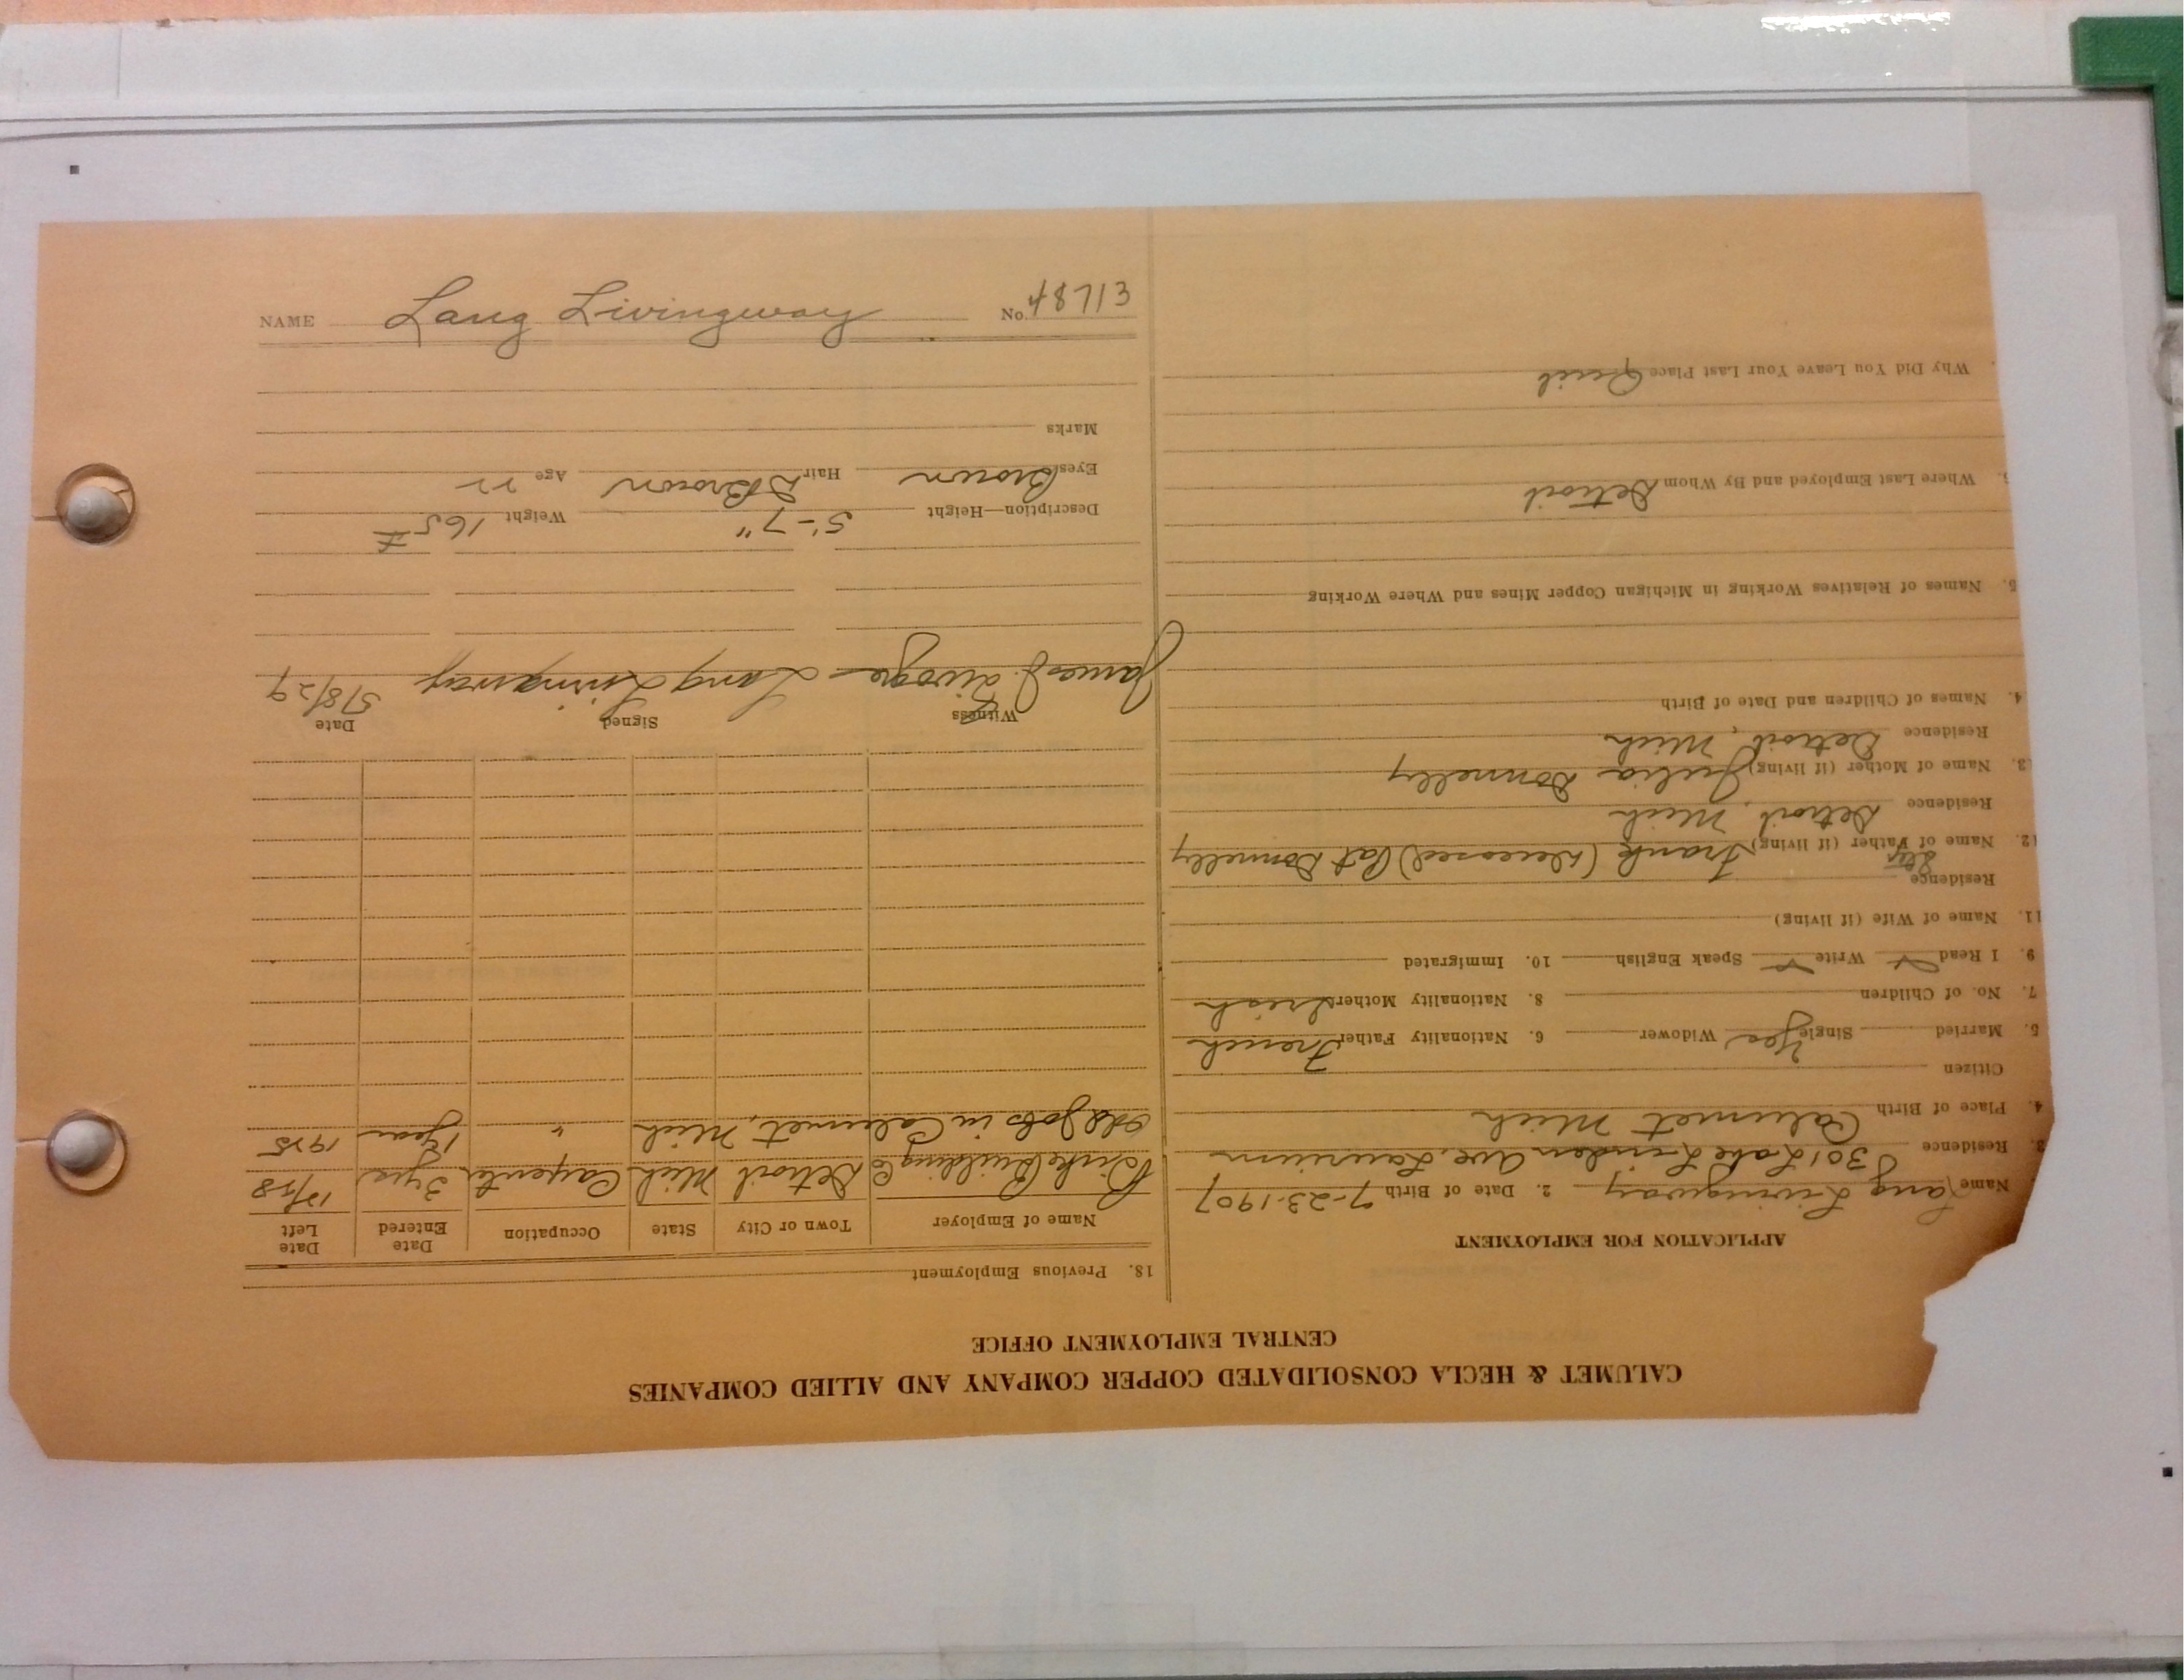 NAME Lang Livingway No. 48713
CALUMET & HECLA CONSOLIDATED COPPER COMPANY AND ALLIED COMPANIES
CENTRAL EMPLOYMENT OFFICE
APPLICATION FOR EMPLOYMENT
Name Lang Livingway 2. Date of Birth 7-23-1907
3. Residence 301 Lake Linden Ave, Laurium
4. Place of Birth Calumet Mich
Citizen
5. Married Single Yes Widower 6. Nationality Father French
7. No. of Children 8. Nationality Mother Irish
9. I Read Write Speak English 10. Immigrated
11. Name of Wife (if living)
Residence
12. Name of Step Father (if living) Frank (deceased) Pat Donnelly
Residence Detroit, Mich
13. Name of Mother (if living) Julia Donnelly
Residence Detroit, Mich
4. Names of Children and Date of Birth
5. Names of Relatives Working in Michigan Copper Mines and Where Working
Where Last Employed and By Whom Detroit
Why Did You Leave Your Last Place Quit
18. Previous Employment
Name of Employer Town or City State Occupation Date Entered Date Left
Building Co Detroit Mich Carpenter 3 yrs 12/28
Odd Jobs in Calumet, Mich " 1 year 1925
Witness Signed Date
James J. Lang Livingway 5/8/29
Description—Height 5'-7" Weight 165 #
Eyes Brown Hair D Brown Age 22
Marks